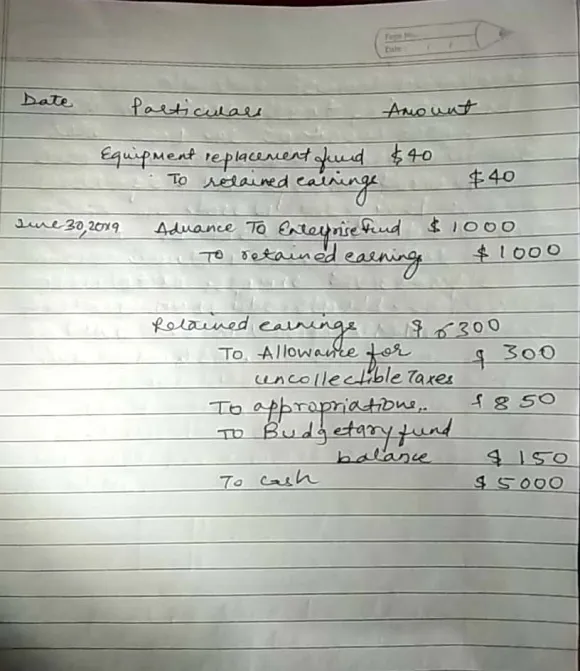 Page No.
Date: / /
Date Particulars Amount
Equipment replacement fund $40
To retained earnings $40
June 30, 2019 Advance To Enterprise Fund $1000
To retained earning $1000
Retained earnings $6300
To Allowance for $300
uncollectible Taxes
To appropriations.. $850
To Budgetary fund
balance $150
To cash $5000